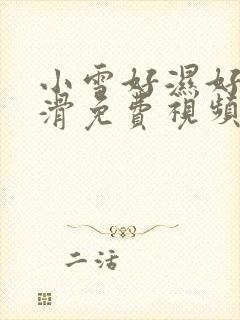 小雪好濕好
滑免費視頻
二活